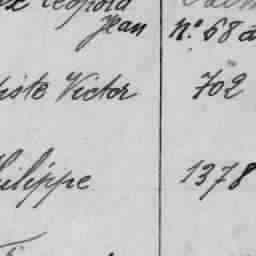 Leopold
Jean nº 68 a
iste Victor 702
hilippe 1378